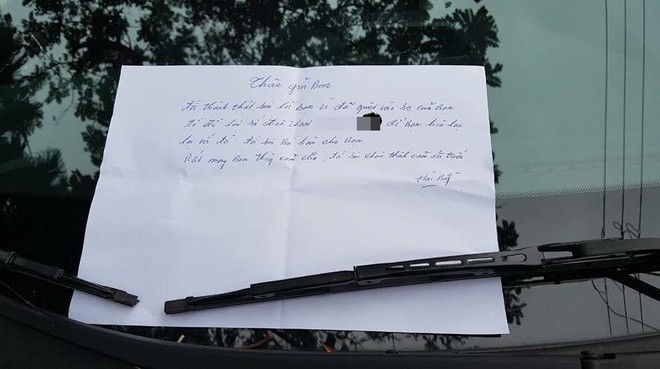 Thân gửi Bạn
Tôi thành thật xin lỗi Bạn vì đã quệt vào xe của Bạn
tớ để lại số điện thoại để Bạn liên lạc
lại với tớ tớ sửa cho Bạn
Rất mong Bạn thông cảm cho, tớ xin chân thành cảm ơn trước